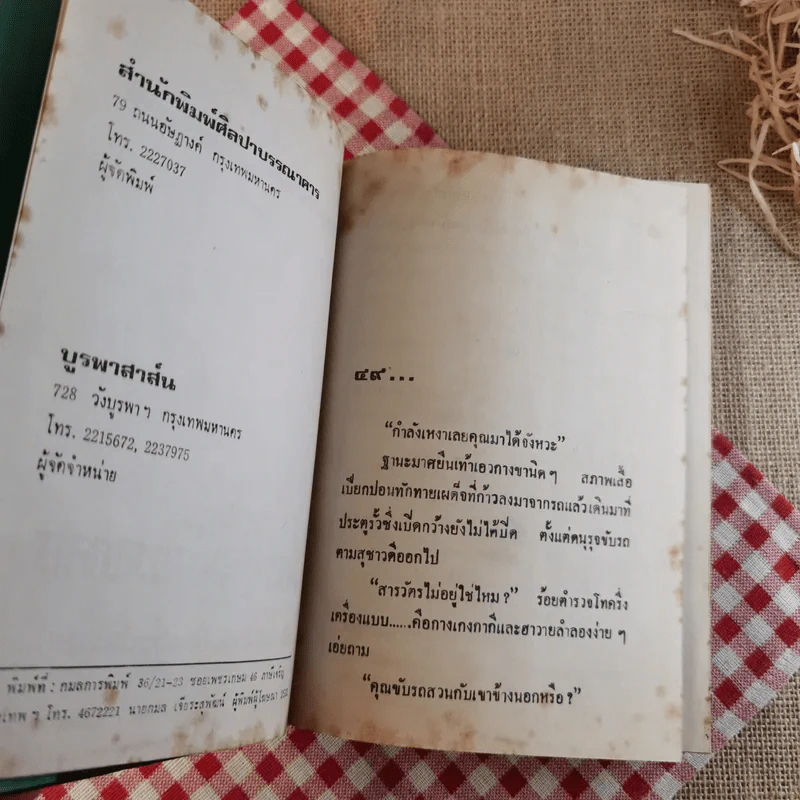 สำนักพิมพ์ศิลปาบรรณาคาร
79 ถนนอัษฎางค์ กรุงเทพมหานคร
โทร. 2227037
ผู้จัดพิมพ์
บูรพาสาส์น
728 วังบูรพา ฯ กรุงเทพมหานคร
โทร. 2215672, 2237975
ผู้จัดจำหน่าย
พิมพ์ที่ : กมลการพิมพ์ 36/21-23 ซอยเพชรเกษม 46 ภาษีเจริญ
งเทพ ฯ โทร. 4672221 นายกมล เจียระสุพัฒน์ ผู้พิมพ์ผู้โฆษณา
๔๙...
“กำลังเหงาเลยคุณมาได้จังหวะ”
ฐานะมาศยืนเท้าเอวกางขานิดๆ สภาพเสื้อ
เปียกปอนทักทายเผด็จที่ก้าวลงมาจากรถแล้วเดินมาที่
ประตูรั้วซึ่งเปิดกว้างยังไม่ได้ปิด ตั้งแต่ดนุรุจขับรถ
ตามสุชาวดีออกไป
“สารวัตรไม่อยู่ใช่ไหม?” ร้อยตำรวจโทครึ่ง
เครื่องแบบ......คือกางเกงกากีและฮาวายลำลองง่าย ๆ
เอ่ยถาม
“คุณขับรถสวนกับเขาข้างนอกหรือ?”